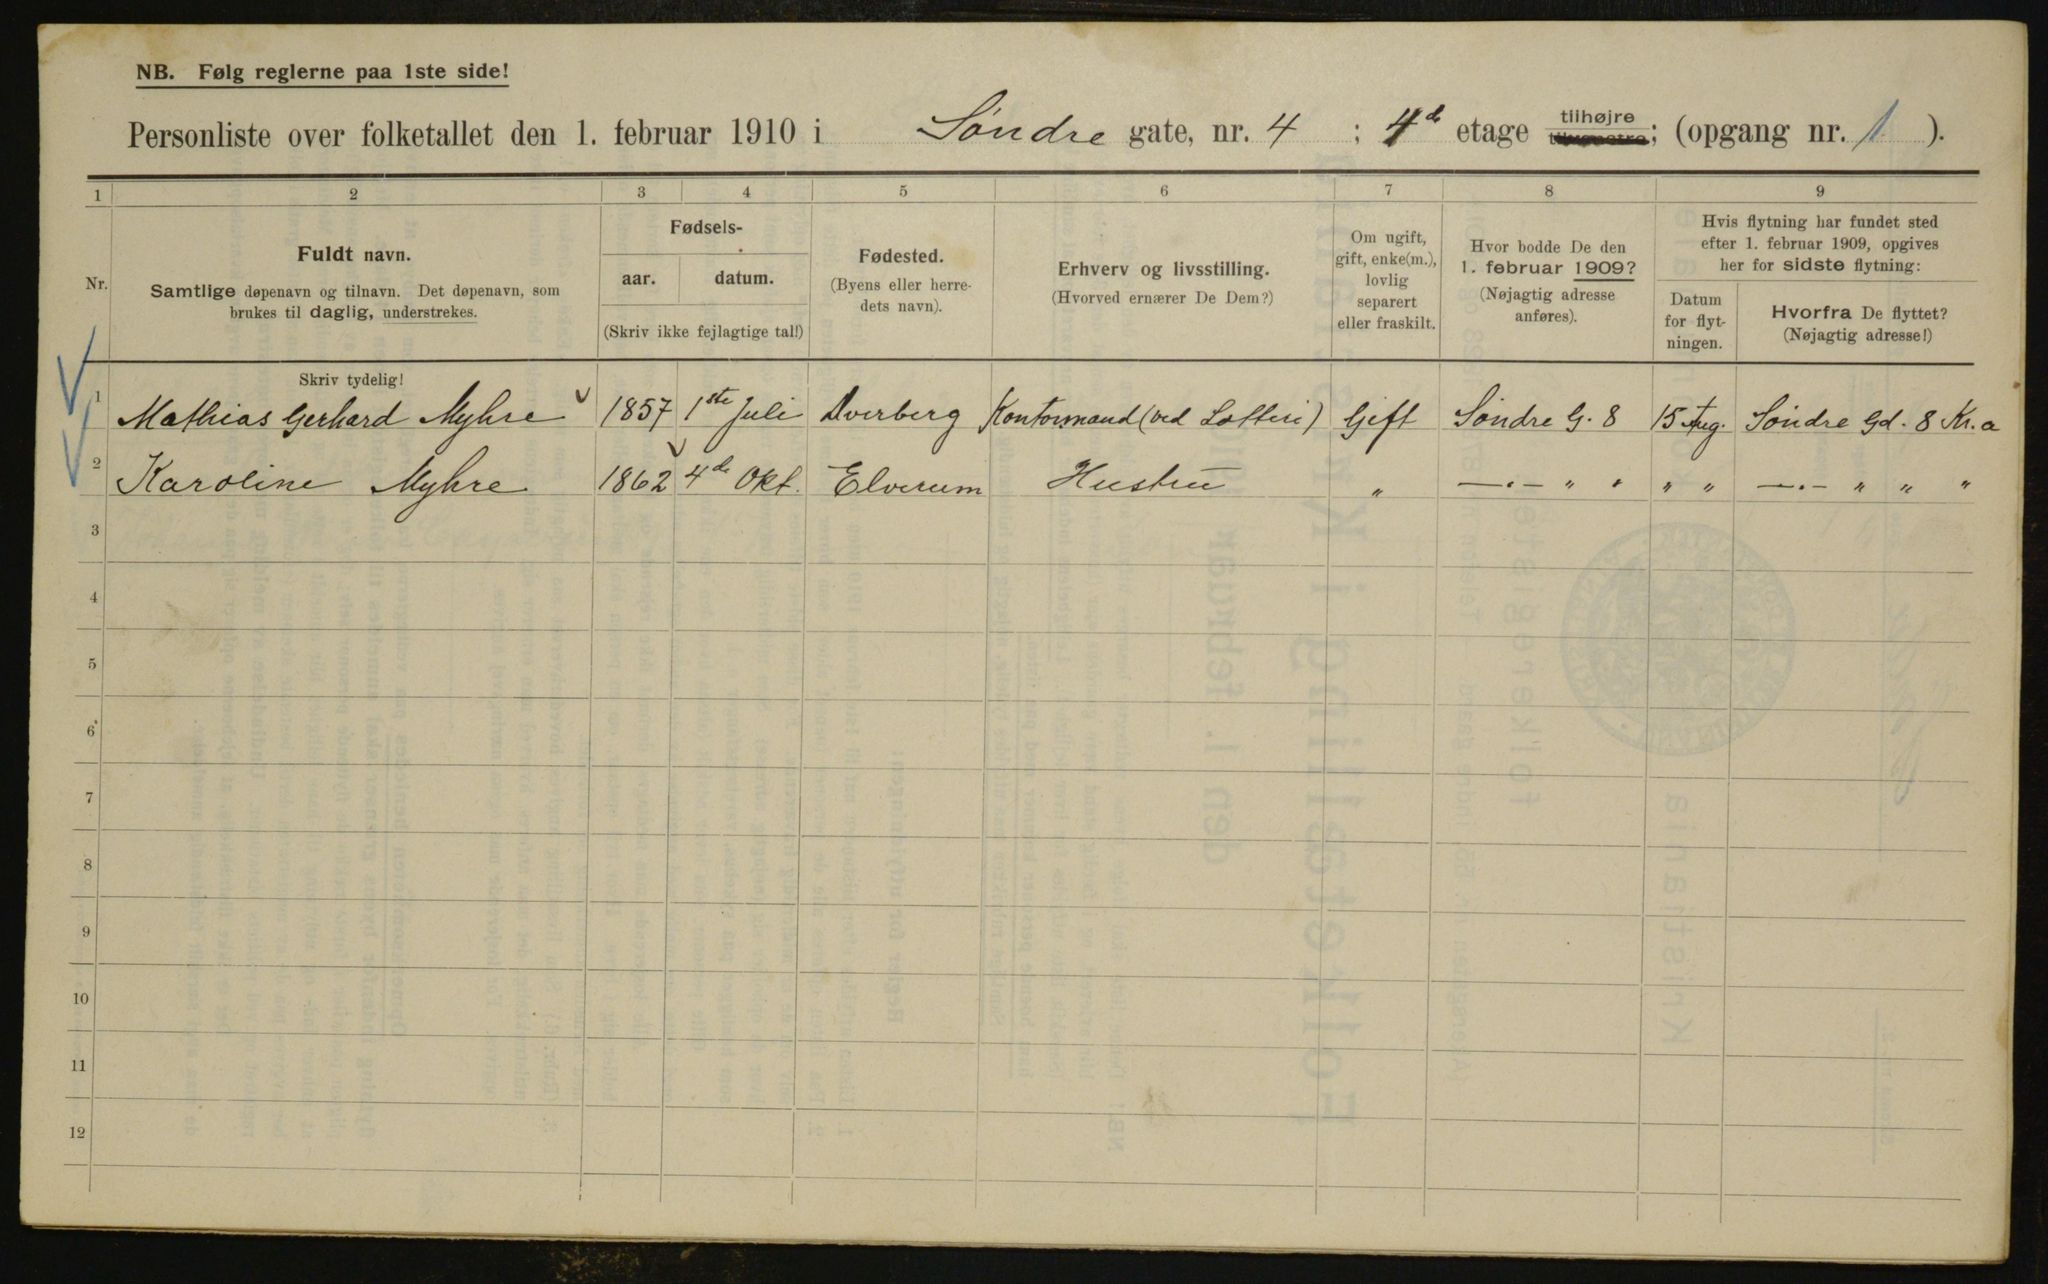 NB. Følg reglerne paa 1ste side!
Personliste over folketallet den 1. februar 1910 i Søndre gate, nr. 4 ; 4de etage tilhøjre tilvenstre; (opgang nr. 1 ).
1 2 3 4 5 6 7 8 9
Nr.
Fuldt navn.
Samtlige døpenavn og tilnavn. Det døpenavn, som
brukes til daglig, understrekes.
Fødsels-
aar. datum.
(Skriv ikke fejlagtige tal!)
Fødested.
(Byens eller herre-
dets navn).
Erhverv og livsstilling.
(Hvorved ernærer De Dem?)
Om ugift,
gift, enke(m.),
lovlig
separert
eller fraskilt.
Hvor bodde De den
1. februar 1909?
(Nøjagtig adresse
anføres).
Hvis flytning har fundet sted
efter 1. februar 1909, opgives
her for sidste flytning:
Datum
for flyt-
ningen.
Hvorfra De flyttet?
(Nøjagtig adresse!)
Skriv tydelig!
1 Mathias Gerhard Myhre 1857 1ste Juli Dverberg Kontormand (ved Lotteri) Gift Søndre G. 8 15 Aug. Søndre Gd. 8 Kr.a
2 Karoline Myhre 1862 4de Okt. Elverum Hustru " —.— " " " " —.— " " "
3
4
5
6
7
8
9
10
11
12